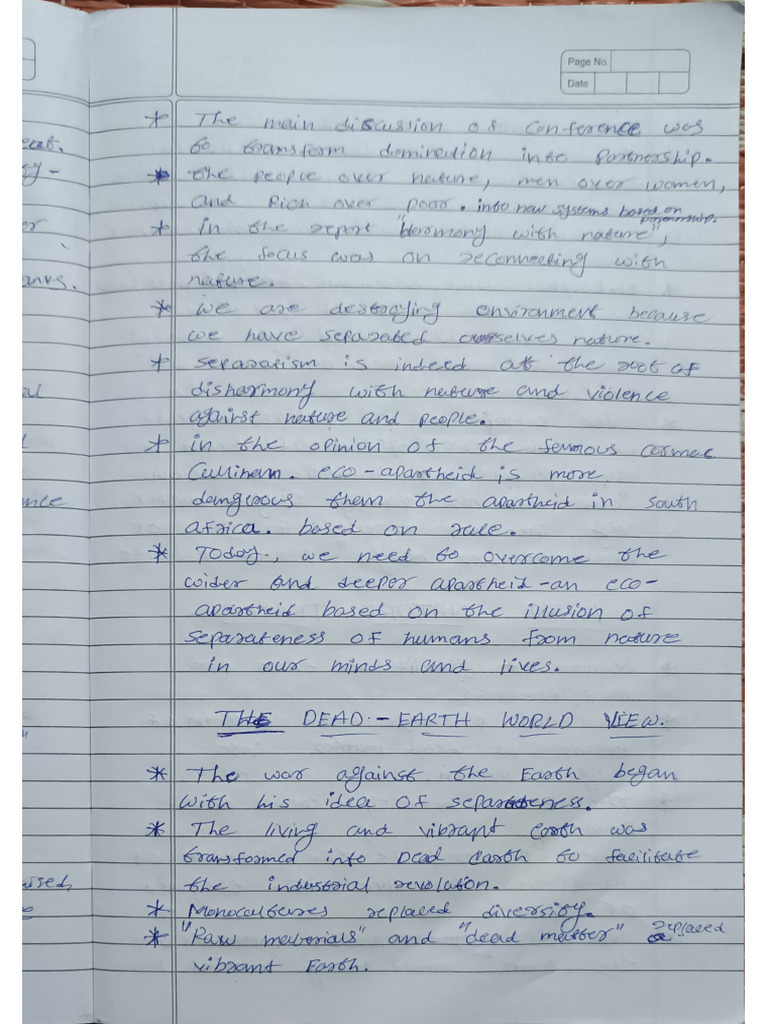 Page No.
Date
* The main discussion of conference was
to transform domination into Partnership.
* the people over nature, men over women,
and Rich over poor. into new systems based on
partnership.
* in the report "Harmony with nature",
the focus was on reconnecting with
nature.
* we are destroying environment because
we have separated ourselves nature.
* separatism is indeed at the root of
disharmony with nature and violence
against nature and people.
* in the opinion of the famous cormac
Cullinam. eco-apartheid is more
dangrous them the apartheid in south
africa. based on rale.
* Today., we need to overcome the
wider and deeper apartheid - an eco-
apartheid based on the illusion of
separateness of humans from nature
in our minds and lives.
THE DEAD - EARTH WORLD VIEW.
* The war against the Earth began
with his idea of separateness.
* The living and vibrant earth was
transformed into Dead Earth to facilitate
the industrial revolution.
* Monocultures replaced diversity.
* "Raw materials" and "dead matter" replaced
vibrant Earth.